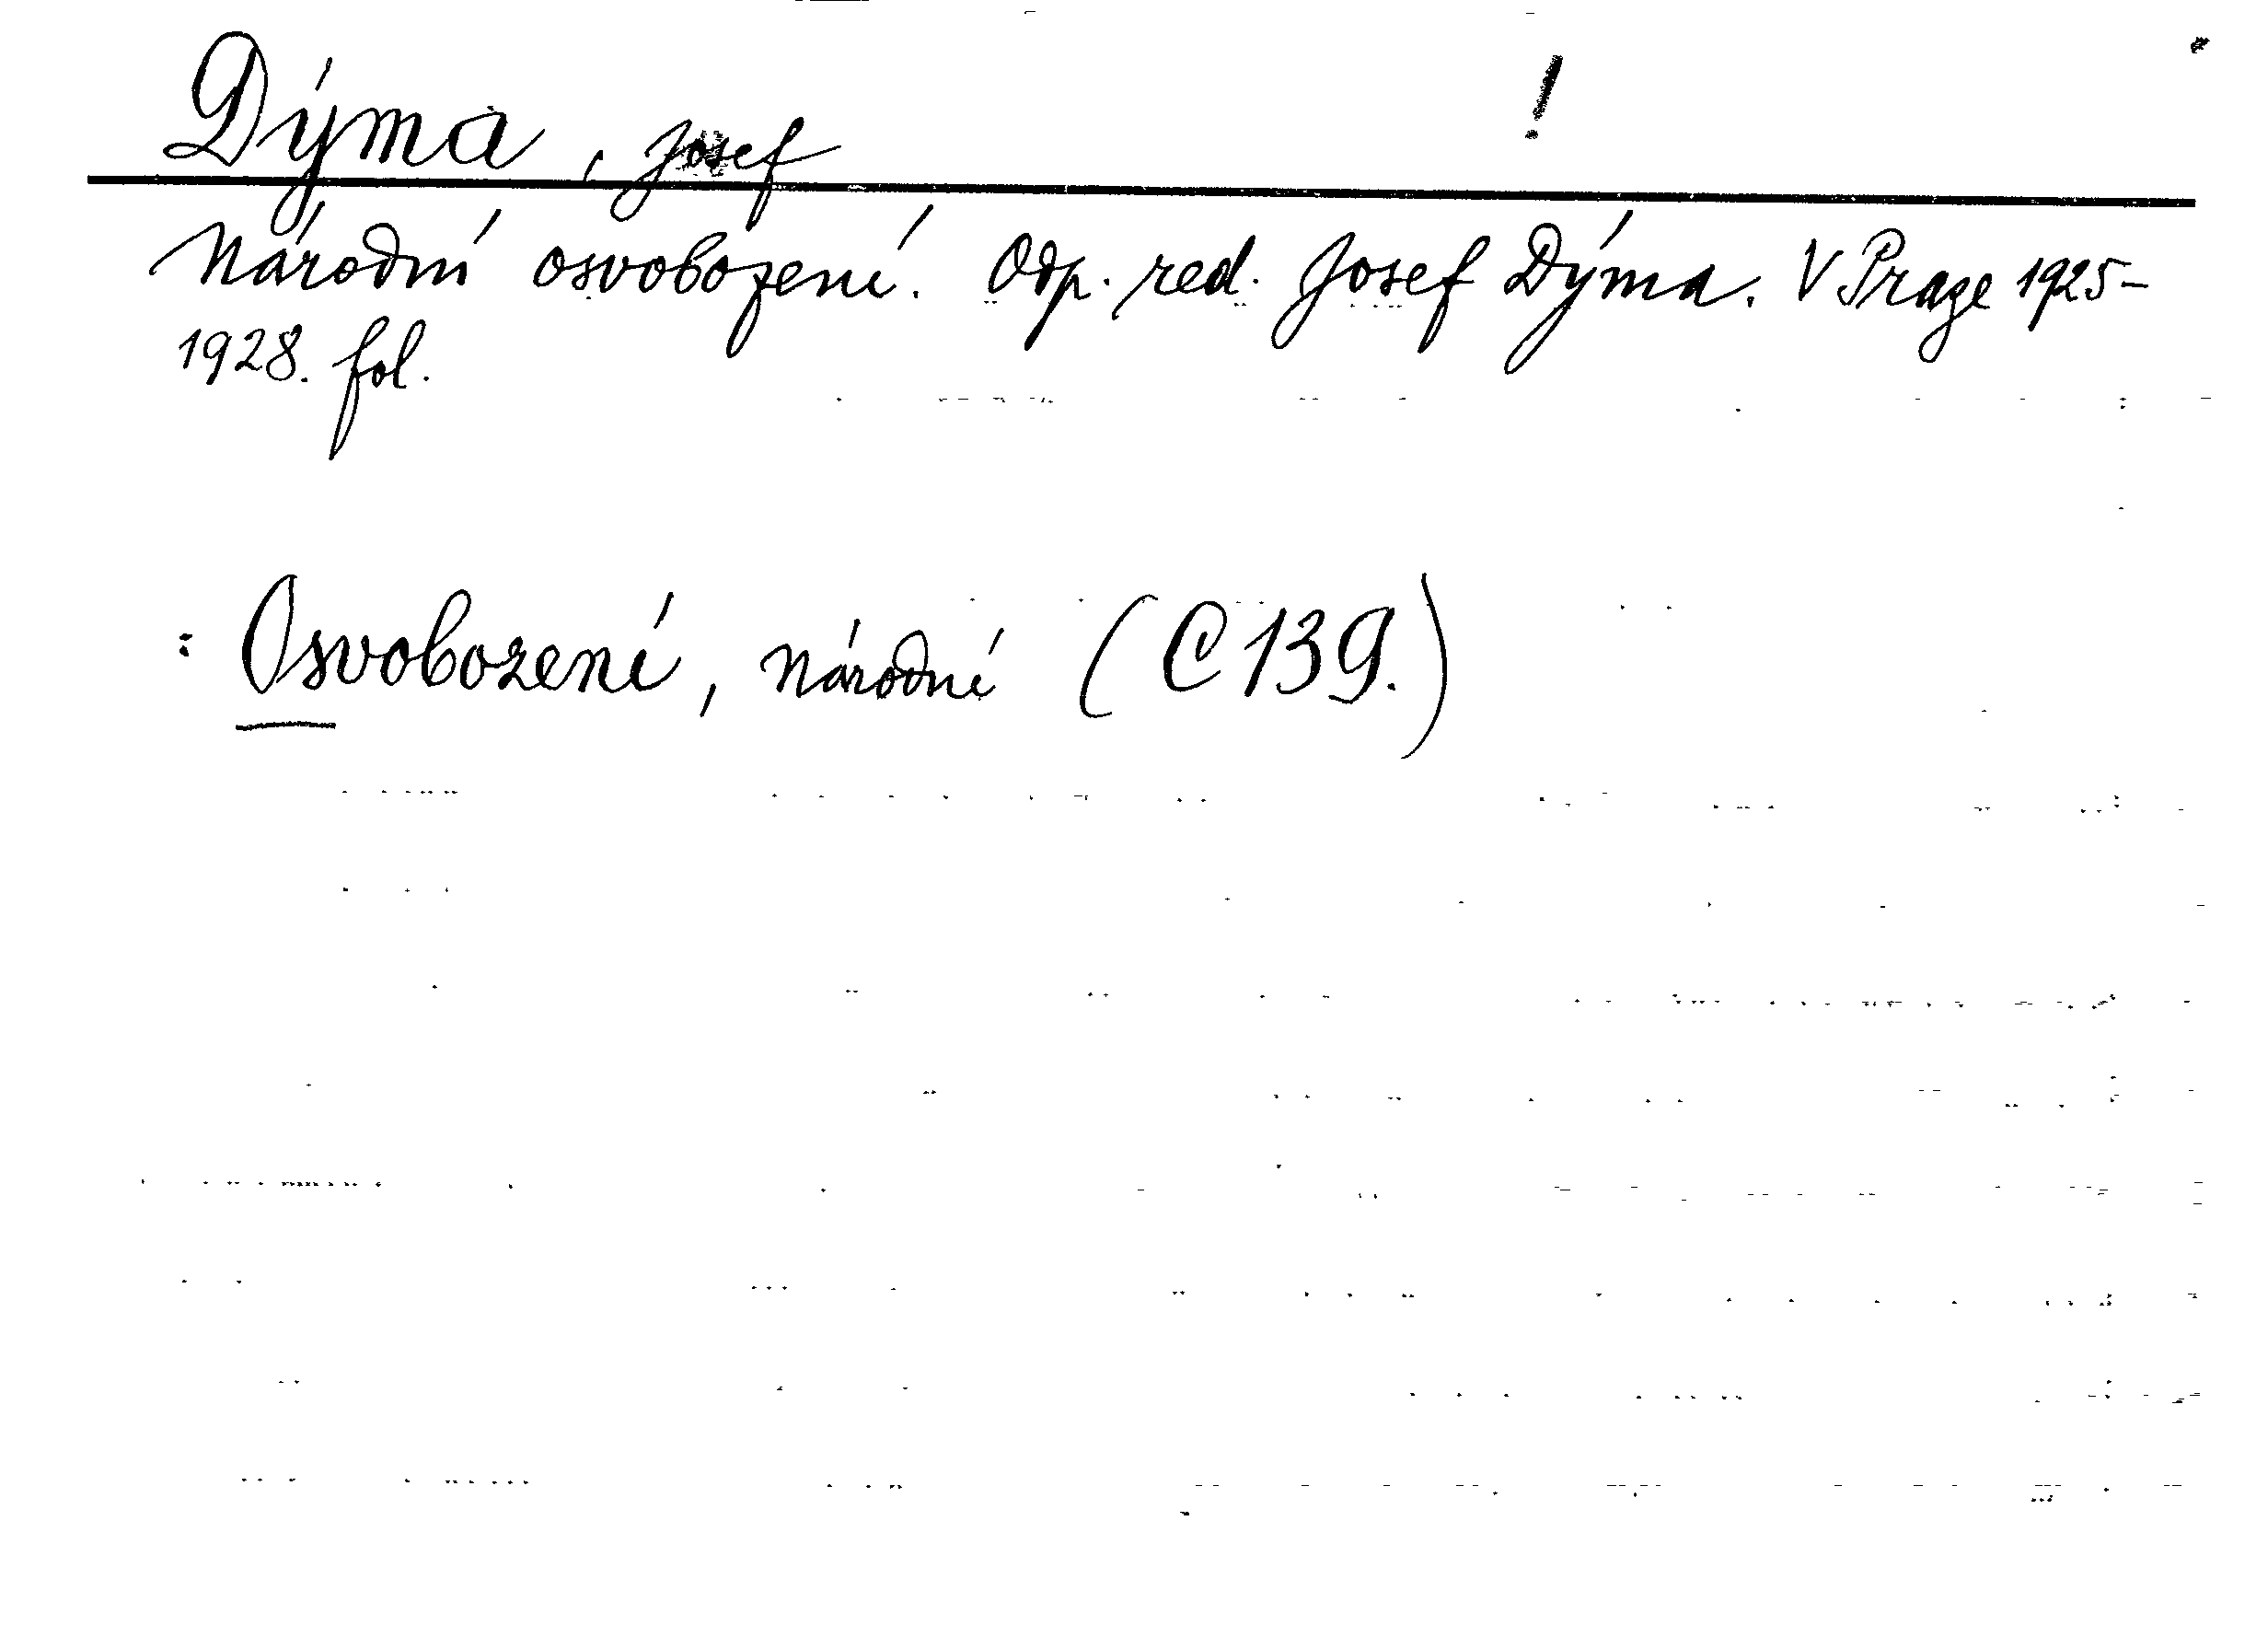 Dýma, Josef !
Národní osvobození. Odp. red. Josef Dýma. V Praze 1925-
1928. fol.
: Osvobození, národní (C 139.)